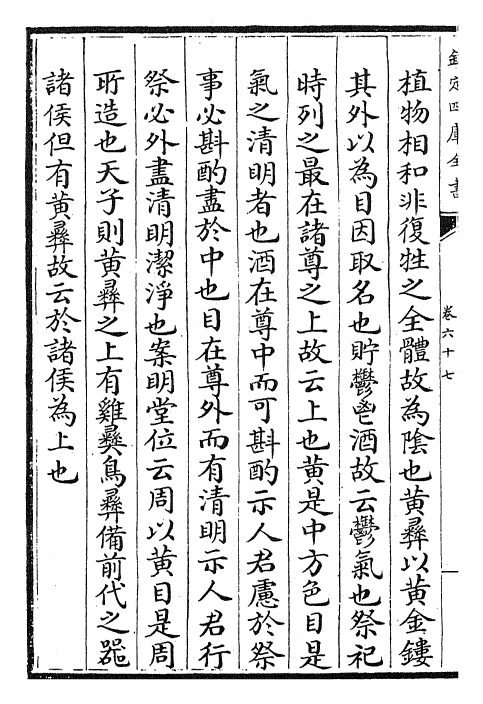 欽定四庫全書
卷六十七
植物相和非復牲之全體故為陰也黄彛以黄金鏤
其外以為目因取名也貯鬱鬯酒故云鬱氣也祭祀
時列之最在諸尊之上故云上也黄是中方色目是
氣之清明者也酒在尊中而可斟酌示人君慮於祭
事必斟酌盡於中也目在尊外而有清明示人君行
祭必外盡清明潔淨也案明堂位云周以黄目是周
所造也天子則黄彛之上有雞彛鳥彛備前代之器
諸侯但有黄彛故云於諸侯為上也